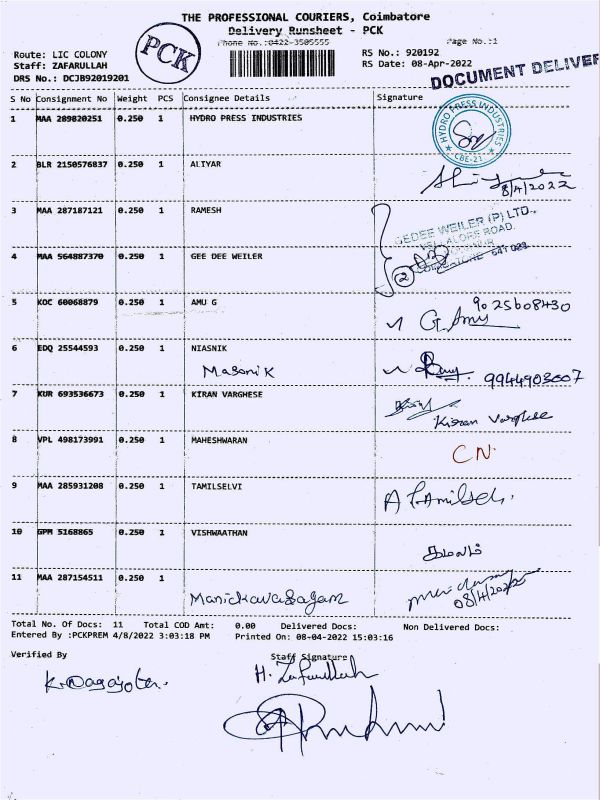 THE PROFESSIONAL COURIERS, Coimbatore
Delivery Runsheet - PCK
Phone No.:0422-3505555 Page No.:1
PCK
Route: LIC COLONY RS No.: 920192
Staff: ZAFARULLAH RS Date: 08-Apr-2022
DRS No.: DCJB92019201
DOCUMENT DELIVER
S No Consignment No Weight PCS Consignee Details Signature
1 MAA 289820251 0.250 1 HYDRO PRESS INDUSTRIES
HYDRO PRESS INDUSTRIES
CBE-21
2 BLR 2150576837 0.250 1 ALIYAR
8/4/2022
3 MAA 287187121 0.250 1 RAMESH
GEDEE WEILER (P) LTD.,
VELLALORE ROAD,
4 MAA 564887370 0.250 1 GEE DEE WEILER
2
COIMBATORE 641 021
5 KOC 60068879 0.250 1 AMU G
90 25608430
G. Amu
6 EDQ 25544593 0.250 1 NIASNIK
Masonik 9944903007
7 KUR 693536673 0.250 1 KIRAN VARGHESE
Kiran Varghese
8 VPL 498173991 0.250 1 MAHESHWARAN
CN
9 MAA 285931208 0.250 1 TAMILSELVI
A Tamilsel.
10 GPM 5168865 0.250 1 VISHWAATHAN
கமலம்
11 MAA 287154511 0.250 1
Manickavasagam
08/4/2022
Total No. Of Docs: 11 Total COD Amt: 0.00 Delivered Docs: Non Delivered Docs:
Entered By :PCKPREM 4/8/2022 3:03:18 PM Printed On: 08-04-2022 15:03:16
Verified By Staff Signature
H. Zafarullah